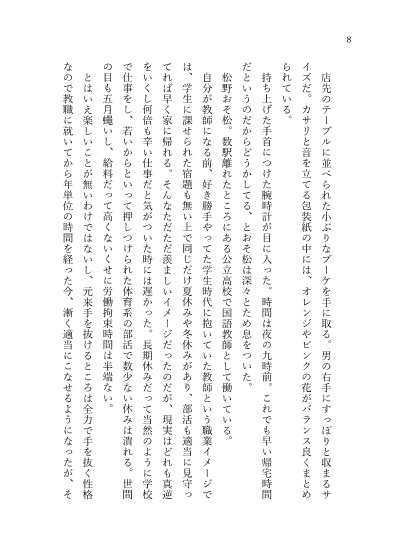 8
店先のテーブルに並べられた小ぶりなブーケを手に取る。男の右手にすっぽりと収まるサ
イズだ。カサリと音を立てる包装紙の中には、オレンジやピンクの花がバランス良くまとめ
られている。
持ち上げた手首につけた腕時計が目に入った。時間は夜の九時前。これでも早い帰宅時間
だというのだからどうかしてる、とおそ松は深々とため息をついた。
松野おそ松。数駅離れたところにある公立高校で国語教師として働いている。
自分が教師になる前、好き勝手やってた学生時代に抱いていた教師という職業イメージで
は、学生に課せられた宿題も無い上で同じだけ夏休みや冬休みがあり、部活も適当に見守っ
てれば早く家に帰れる。そんなただただ羨ましいイメージだったのだが、現実はどれも真逆
をいくし何倍も辛い仕事だと気がついた時には遅かった。長期休みだって当然のように学校
で仕事をし、若いからといって押しつけられた体育系の部活で数少ない休みは潰れる。世間
の目も五月蠅いし、給料だって高くないくせに労働拘束時間は半端ない。
とはいえ楽しいことが無いわけではないし、元来手を抜けるところは全力で手を抜く性格
なので教職に就いてから年単位の時間を経った今、漸く適当にこなせるようになったが、そ